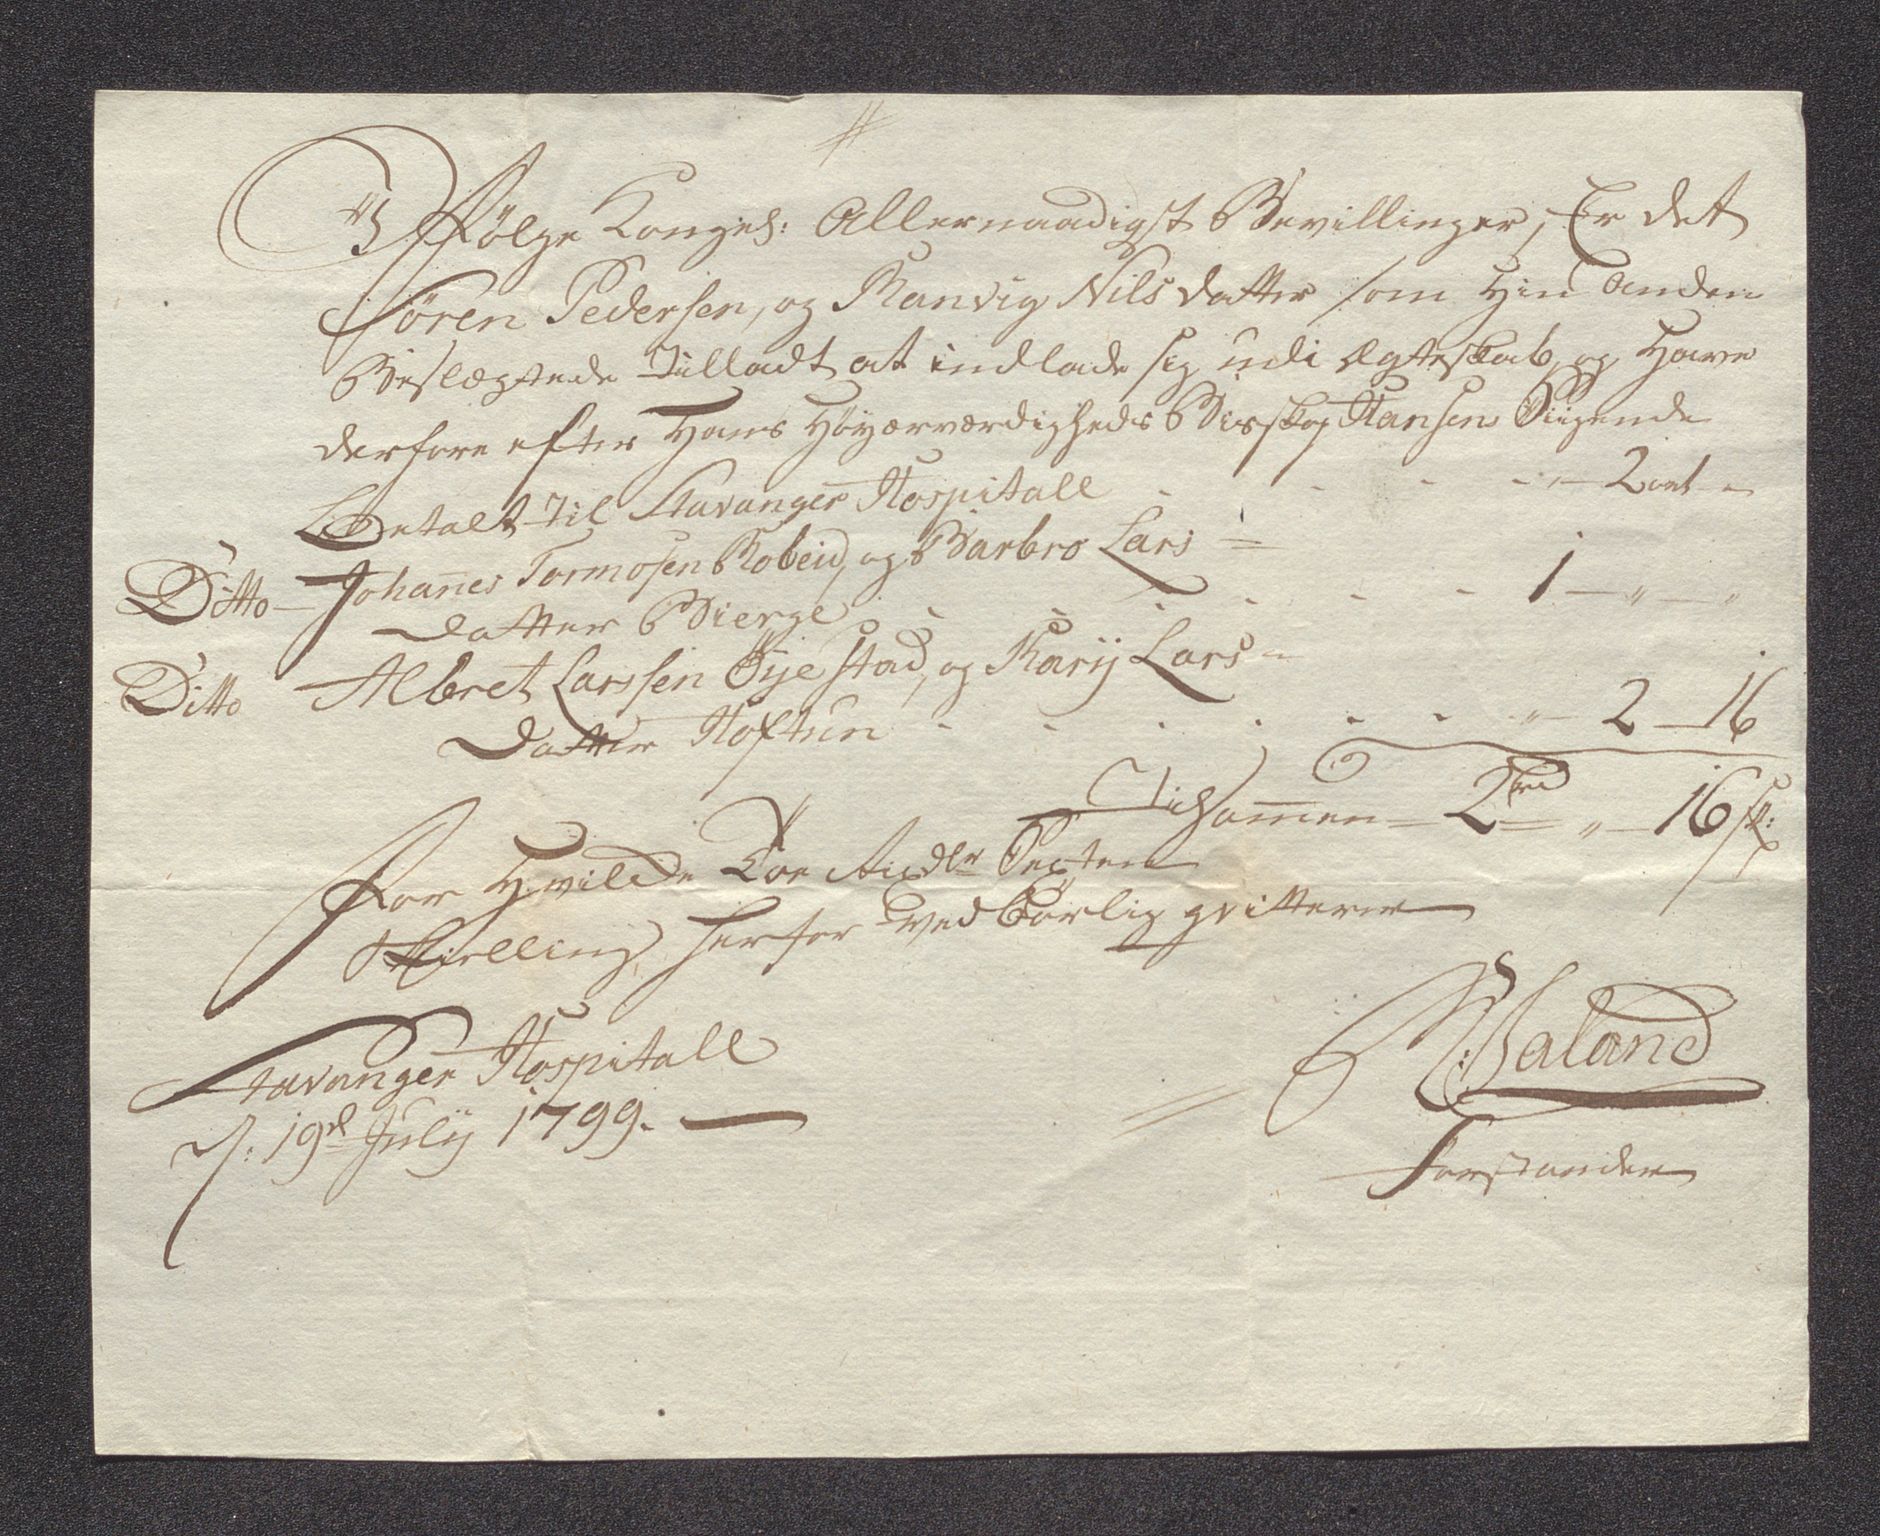 I Følge Kongel: Allernaadigst Bevillinger, Er det
Sören Pedersen, og Ranvig Nilsdatter som Hin Anden
Beslægtede Tilladt at indlade sig udi Ægteskab, og Have
derfore efter Hans Høyærværdigheds Bisskop Hansens Siigende
Betalt Til Stavanger Hospitall - - - - 2 ort -
Ditto - Johannes Tormosen Bobeid, og Barbro Lars =
datter Bierge - - - - - 1 - " - "
Ditto Albret Larssen Öÿestad, og Karij Lars -
datter Hoftun - - - - - - " - 2 - 16
Tilsamen - 2 rd = " - 16 sk:
For Hvilde Toe Rixdlr Sexten
Skielling herfor vedbørlig qvitterer
Stavanger Hospitall
d: 19d Julij 1799. -
Baland
Forstander